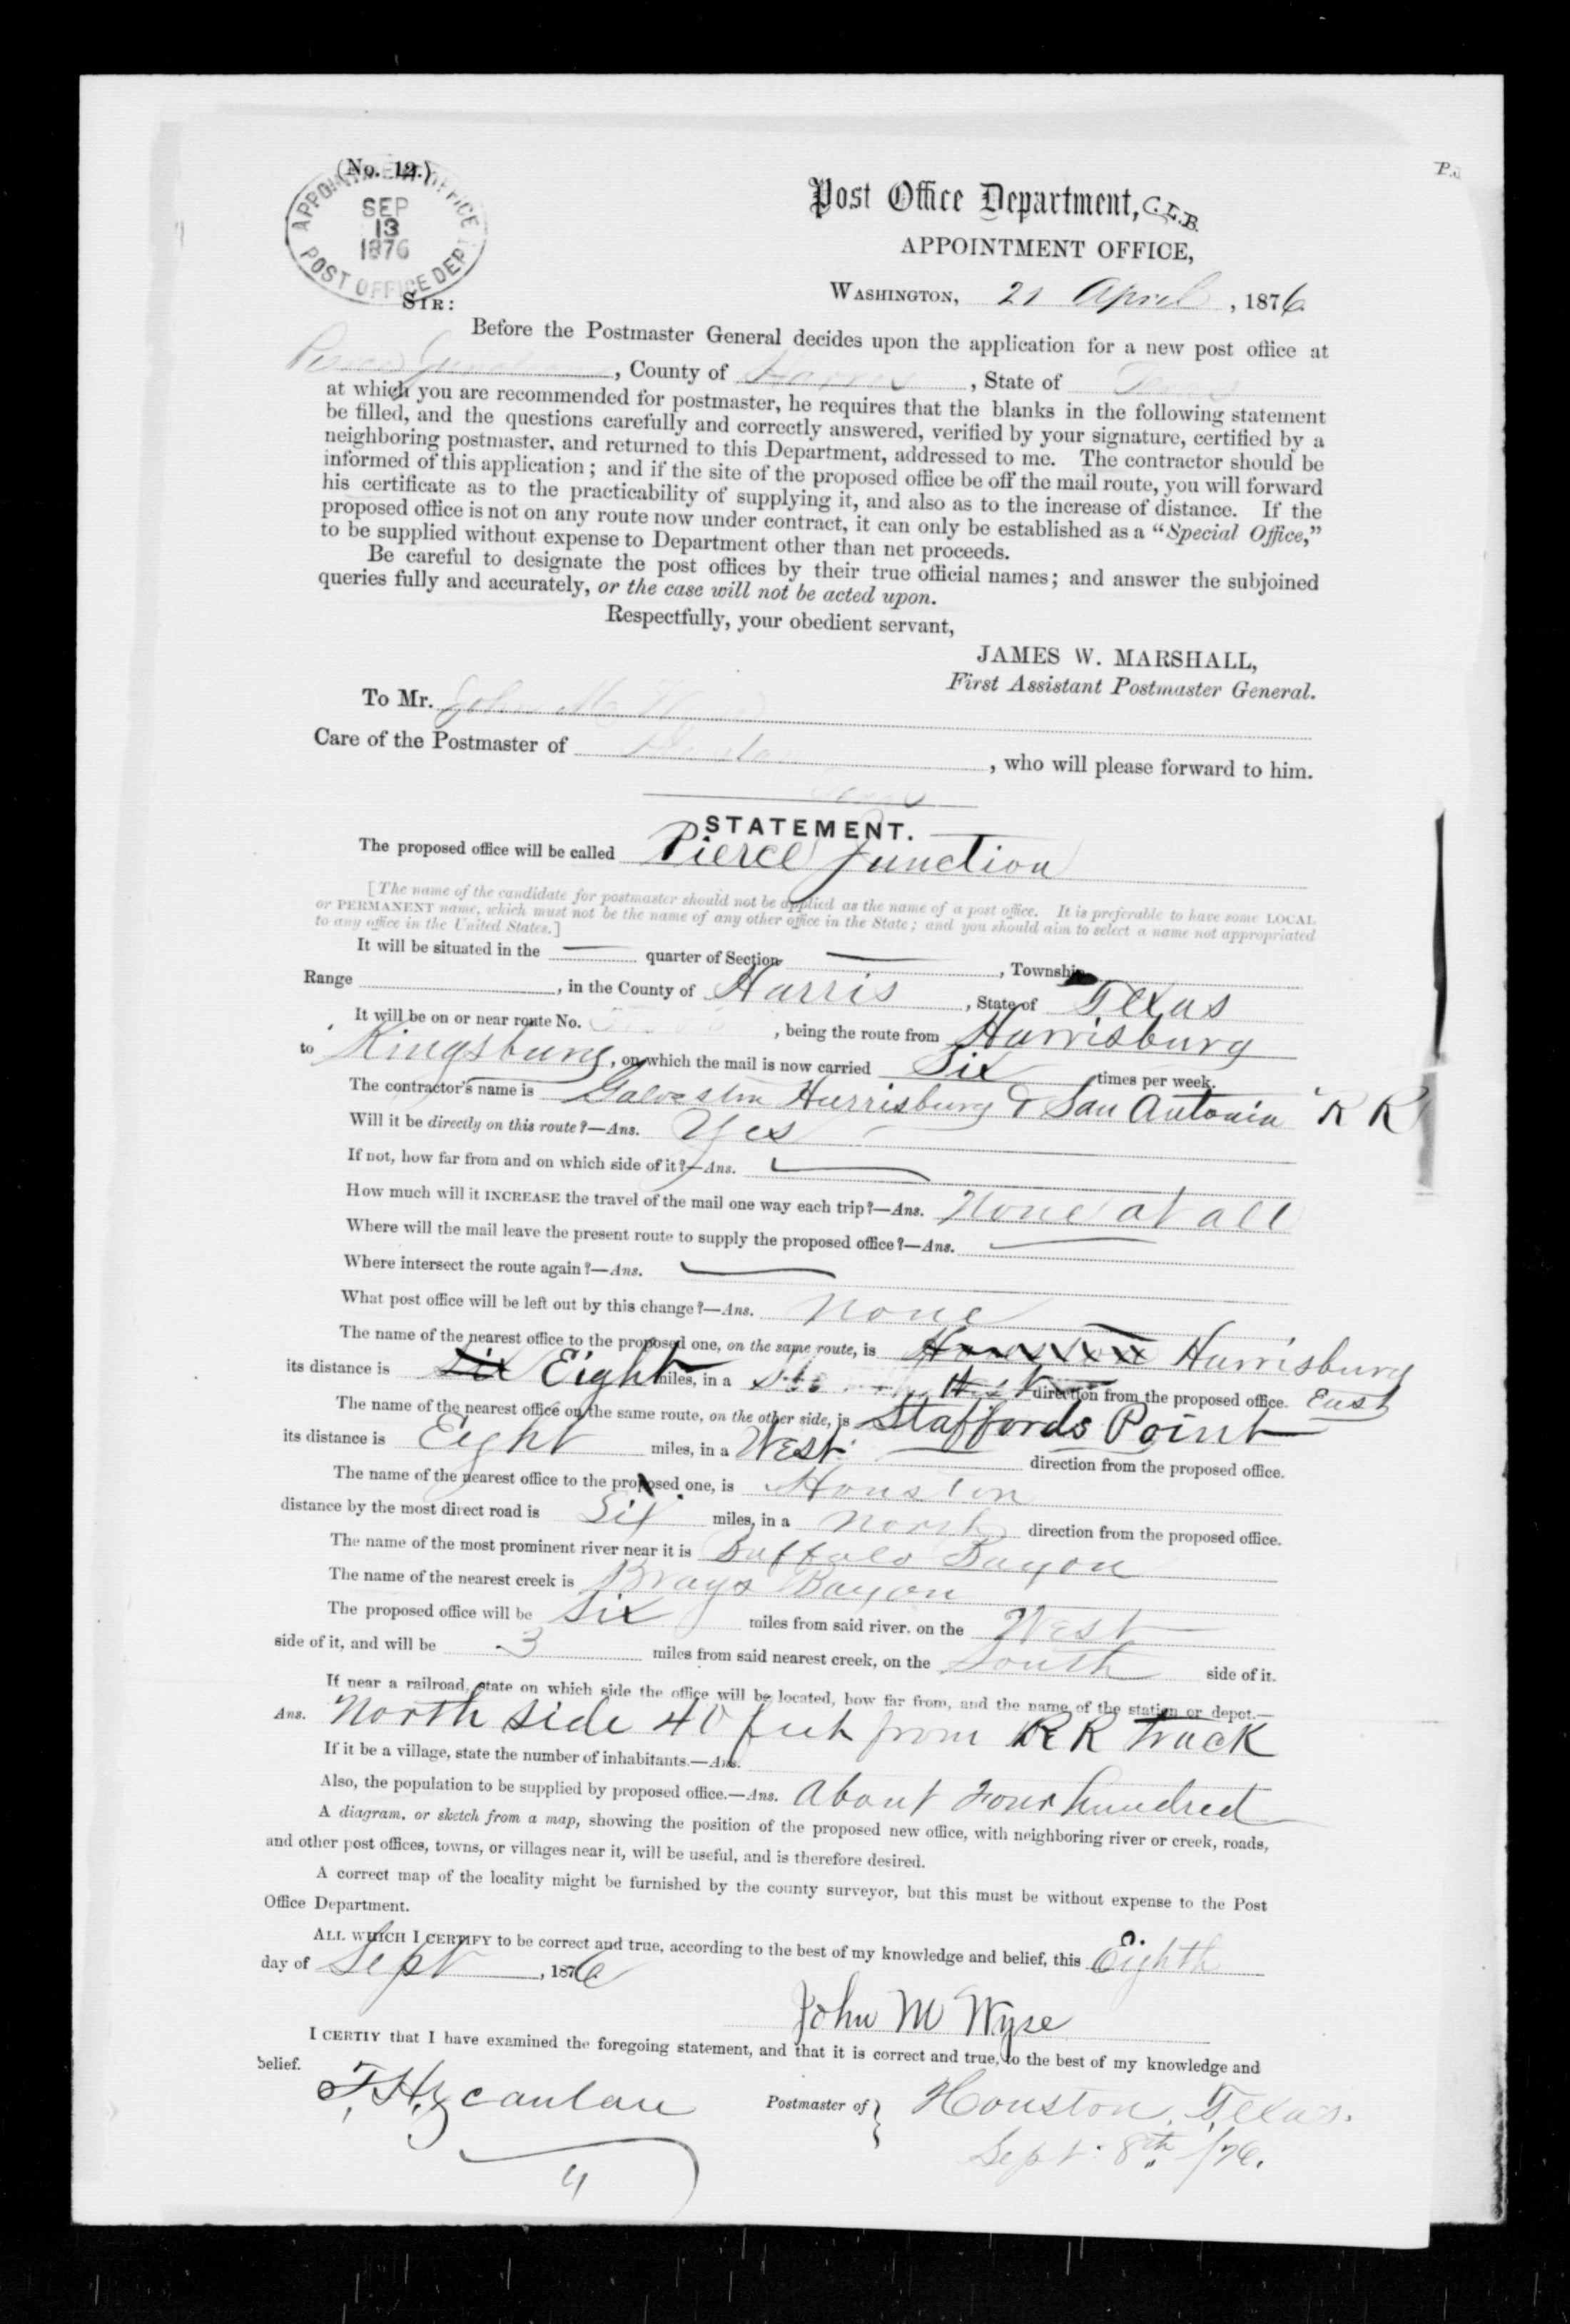 (No. 12.)
APPOINTMENT OFFICE
SEP
13
1876
POST OFFICE DEPT
Post Office Department, C.L.B.
APPOINTMENT OFFICE,
WASHINGTON, 21 April, 1876
SIR:
Before the Postmaster General decides upon the application for a new post office at
Pierce Junction, County of Harris, State of Texas
at which you are recommended for postmaster, he requires that the blanks in the following statement
be filled, and the questions carefully and correctly answered, verified by your signature, certified by a
neighboring postmaster, and returned to this Department, addressed to me. The contractor should be
informed of this application; and if the site of the proposed office be off the mail route, you will forward
his certificate as to the practicability of supplying it, and also as to the increase of distance. If the
proposed office is not on any route now under contract, it can only be established as a "Special Office,"
to be supplied without expense to Department other than net proceeds.
Be careful to designate the post offices by their true official names; and answer the subjoined
queries fully and accurately, or the case will not be acted upon.
Respectfully, your obedient servant,
JAMES W. MARSHALL,
First Assistant Postmaster General.
To Mr. John M
Care of the Postmaster of Houston, who will please forward to him.
STATEMENT.
The proposed office will be called Pierce Junction
[The name of the candidate for postmaster should not be applied as the name of a post office. It is preferable to have some LOCAL
or PERMANENT name, which must not be the name of any other office in the State; and you should aim to select a name not appropriated
to any office in the United States.]
It will be situated in the — quarter of Section —, Township
Range , in the County of Harris, State of Texas
It will be on or near route No. , being the route from Harrisburg
to Kingsbury, on which the mail is now carried Six times per week.
The contractor's name is Galveston Harrisburg & San Antonia R R
Will it be directly on this route?—Ans. Yes
If not, how far from and on which side of it?—Ans. —
How much will it INCREASE the travel of the mail one way each trip?—Ans. None at all
Where will the mail leave the present route to supply the proposed office?—Ans. —
Where intersect the route again?—Ans. —
What post office will be left out by this change?—Ans. None
The name of the nearest office to the proposed one, on the same route, is Houston Harrisburg
its distance is Six Eight miles, in a direction from the proposed office. East
The name of the nearest office on the same route, on the other side, is Staffords Point
its distance is Eight miles, in a West direction from the proposed office.
The name of the nearest office to the proposed one, is Houston
distance by the most direct road is Six miles, in a North direction from the proposed office.
The name of the most prominent river near it is Buffalo Bayou
The name of the nearest creek is Brays Bayou
The proposed office will be Six miles from said river, on the West
side of it, and will be 3 miles from said nearest creek, on the South side of it.
If near a railroad, state on which side the office will be located, how far from, and the name of the station or depot.—
Ans. North side 40 feet from RR track
If it be a village, state the number of inhabitants.—Ans.
Also, the population to be supplied by proposed office.—Ans. About Four hundred
A diagram, or sketch from a map, showing the position of the proposed new office, with neighboring river or creek, roads,
and other post offices, towns, or villages near it, will be useful, and is therefore desired.
A correct map of the locality might be furnished by the county surveyor, but this must be without expense to the Post
Office Department.
ALL WHICH I CERTIFY to be correct and true, according to the best of my knowledge and belief, this Eighth
day of Sept, 1876
John M Wyse
I CERTIY that I have examined the foregoing statement, and that it is correct and true, to the best of my knowledge and
belief.
T. H. Scanlan Postmaster of } Houston, Texas.
Sept. 8th /76.